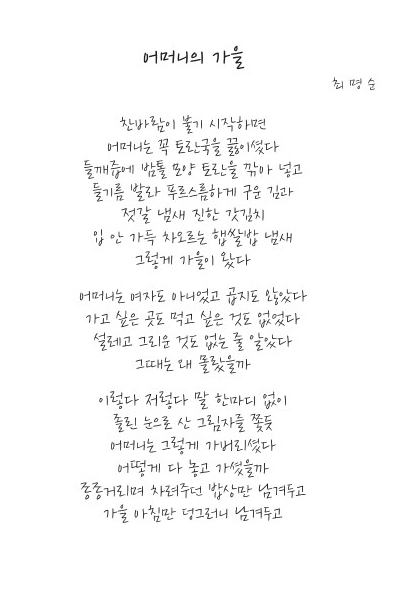 어머니의 가을
최명순
찬바람이 불기 시작하면
어머니는 꼭 토란국을 끓이셨다
들깨즙에 밤톨 모양 토란을 깎아 넣고
들기름 발라 푸르스름하게 구운 김과
젓갈 냄새 진한 갓김치
입 안 가득 차오르는 햅쌀밥 냄새
그렇게 가을이 왔다
어머니는 여자도 아니었고 곱지도 않았다
가고 싶은 곳도 먹고 싶은 것도 없었다
설레고 그리운 것도 없는 줄 알았다
그때는 왜 몰랐을까
이렇다 저렇다 말 한마디 없이
졸린 눈으로 산 그림자를 쫓듯
어머니는 그렇게 가버리셨다
어떻게 다 놓고 가셨을까
종종거리며 차려주던 밥상만 남겨두고
가을 아침만 덩그러니 남겨두고